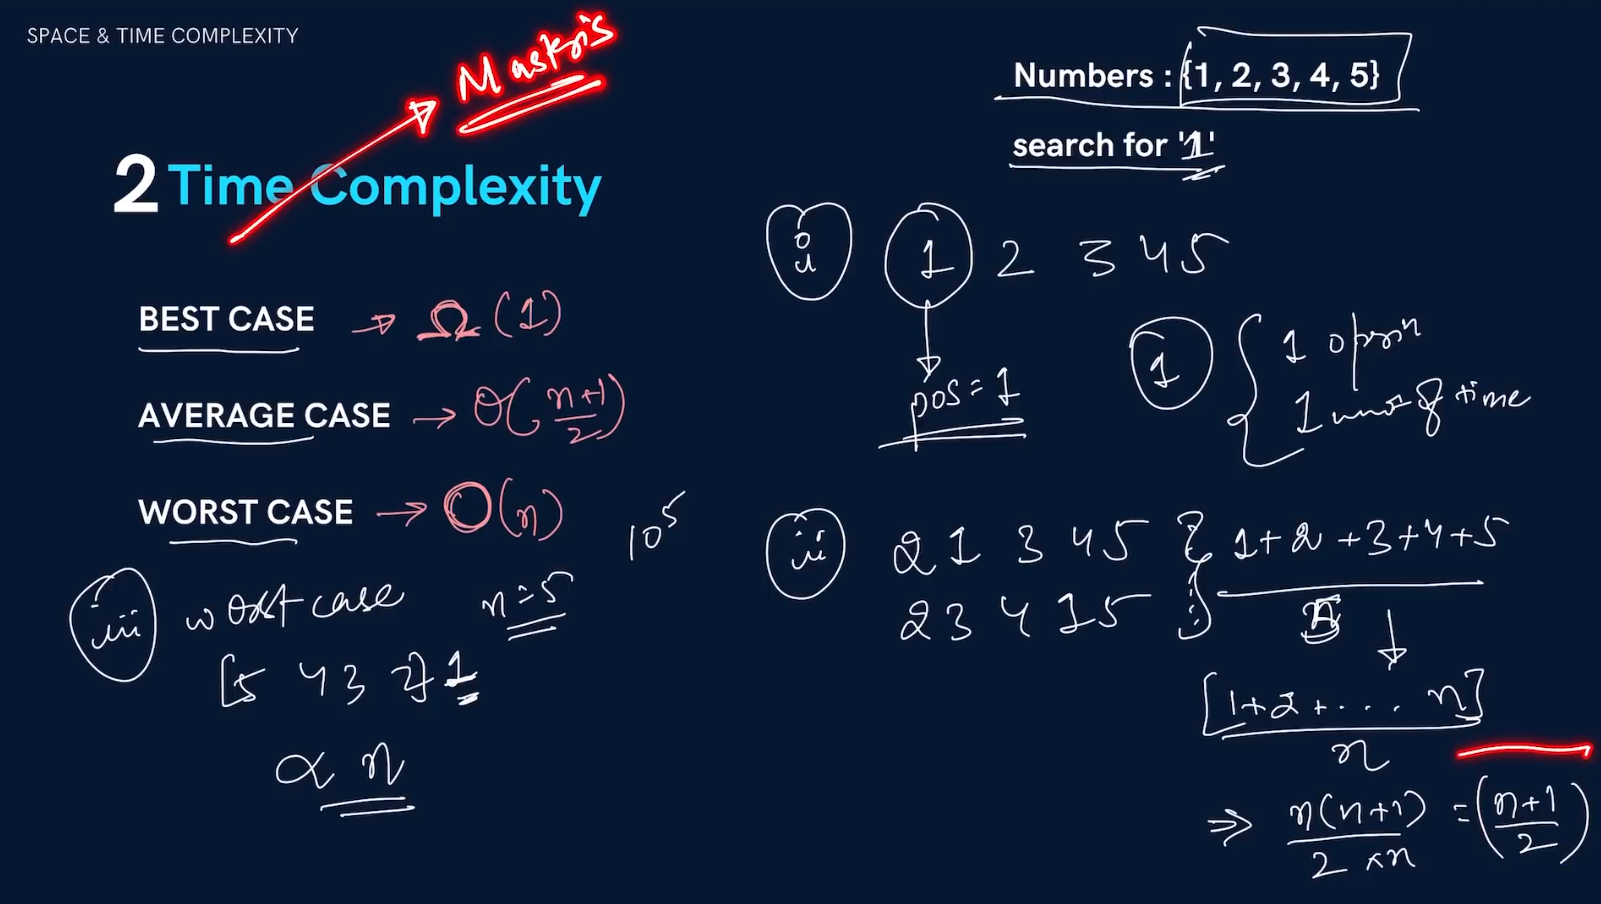 SPACE & TIME COMPLEXITY
2 Time Complexity
BEST CASE → Ω (1)
AVERAGE CASE → Θ( n+1 / 2 )
WORST CASE → O(n)
10^5
iii worst case n=5
[5 4 3 2] 1
α n
Numbers : {1, 2, 3, 4, 5}
search for '1'
i 1 2 3 4 5
pos = 1
1 { 1 opern
1 unit of time
ii 2 1 3 4 5 } 1+2+3+4+5
2 3 4 1 5
5
[1+2+... n]
n
⇒ n(n+1) / 2×n = ( n+1 / 2 )